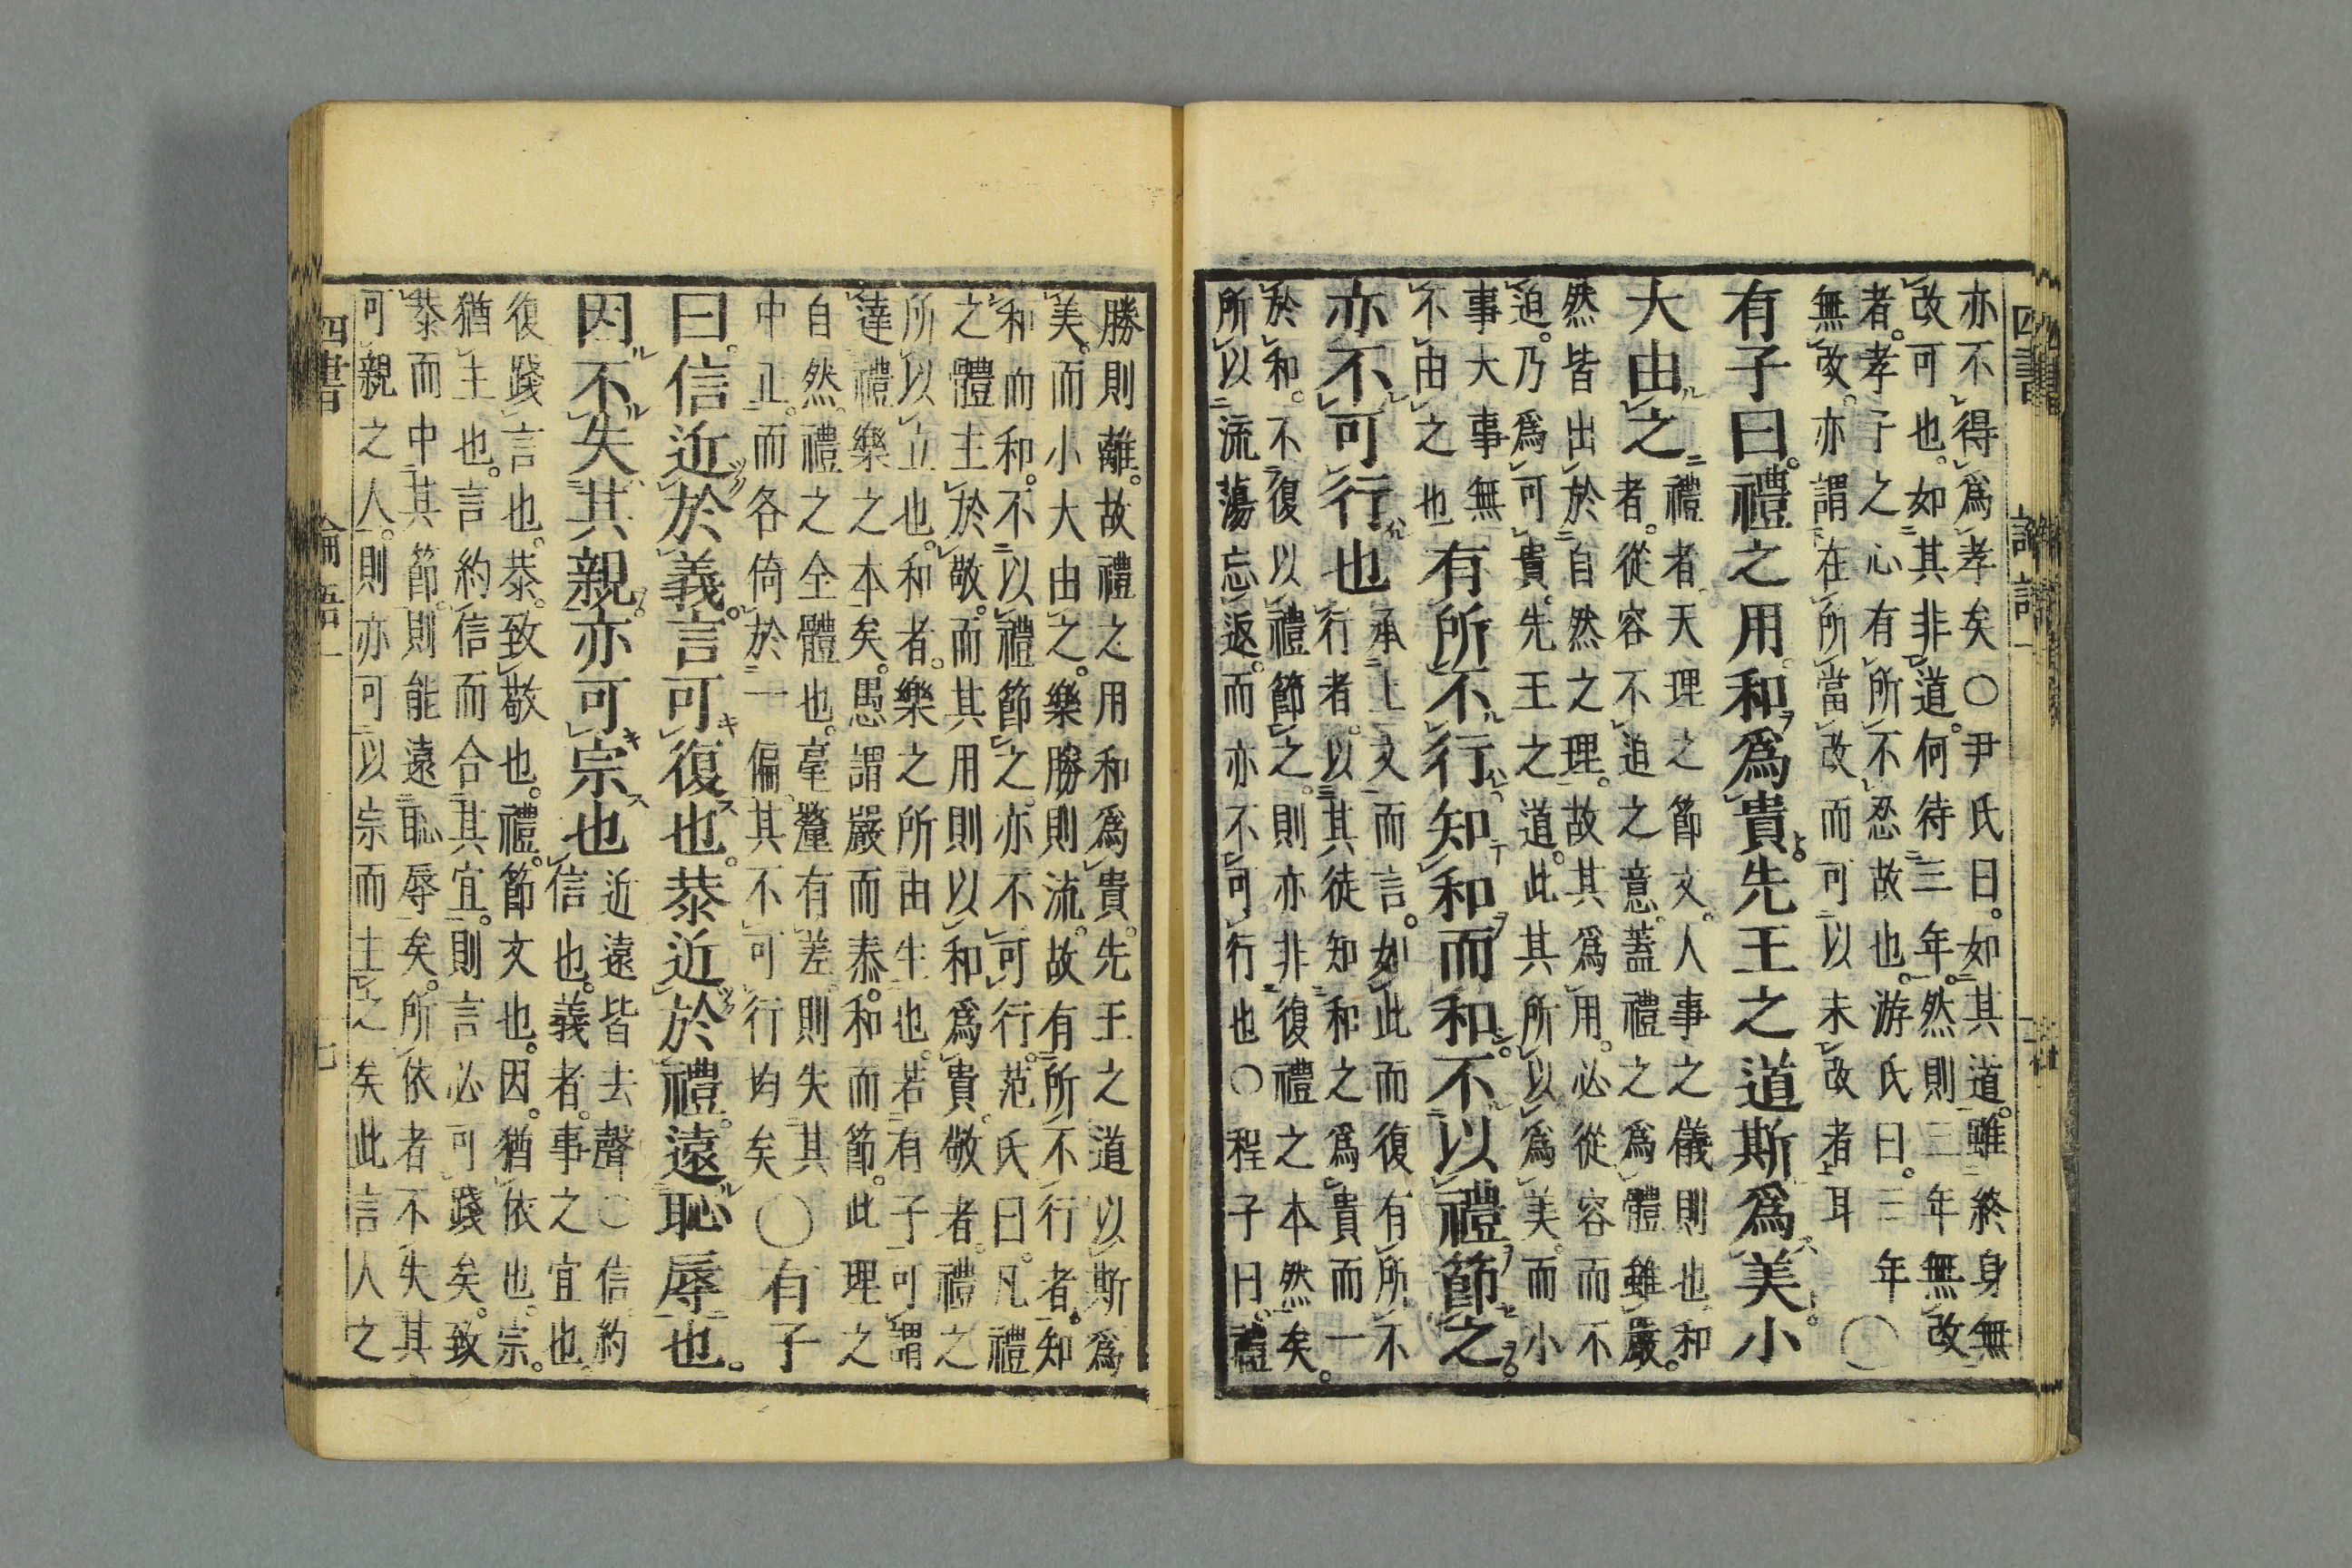 亦不得爲孝矣○尹氏曰。如其道。雖終身無
改可也。如其非道。何待三年。然則三年無改
者。孝子之心有所不忍故也。游氏曰。三年
無改。亦謂在所當改而可以未改者耳 ○
有子曰。禮之用。和爲貴。先王之道斯爲美。小
大由之 禮者。天理之節文。人事之儀則也。和
者。從容不迫之意。蓋禮之爲體雖嚴。
然皆出於自然之理。故其爲用。必從容而不
迫。乃爲可貴。先王之道。此其所以爲美。而小
事大事無
不由之也 有所不行。知和而和。不以禮節之。
亦不可行也 承上文而言。如此而復有所不
行者。以其徒知和之爲貴而一
於和。不復以禮節之。則亦非復禮之本然矣。
所以流蕩忘返。而亦不可行也○程子曰。禮
勝則離。故禮之用和爲貴。先王之道以斯爲
美。而小大由之。樂勝則流。故有所不行者。知
和而和。不以禮節之。亦不可行。范氏曰。凡禮
之體主於敬。而其用則以和爲貴。敬者。禮之
所以立也。和者。樂之所由生也。若有子可謂
達禮樂之本矣。愚謂嚴而泰。和而節。此理之
自然。禮之全體也。毫釐有差。則失其
中正。而各倚於一偏。其不可行均矣 ○有子
曰。信近於義。言可復也。恭近於禮。遠恥辱也。
因不失其親。亦可宗也 近遠皆去聲○信約
信也。義者。事之宜也。
復踐言也。恭。致敬也。禮。節文也。因。猶依也。宗。
猶主也。言約信而合其宜。則言必可踐矣。致
恭而中其節。則能遠恥辱矣。所依者不失其
可親之人。則亦可以宗而主之矣此言人之
四書 論語一 七